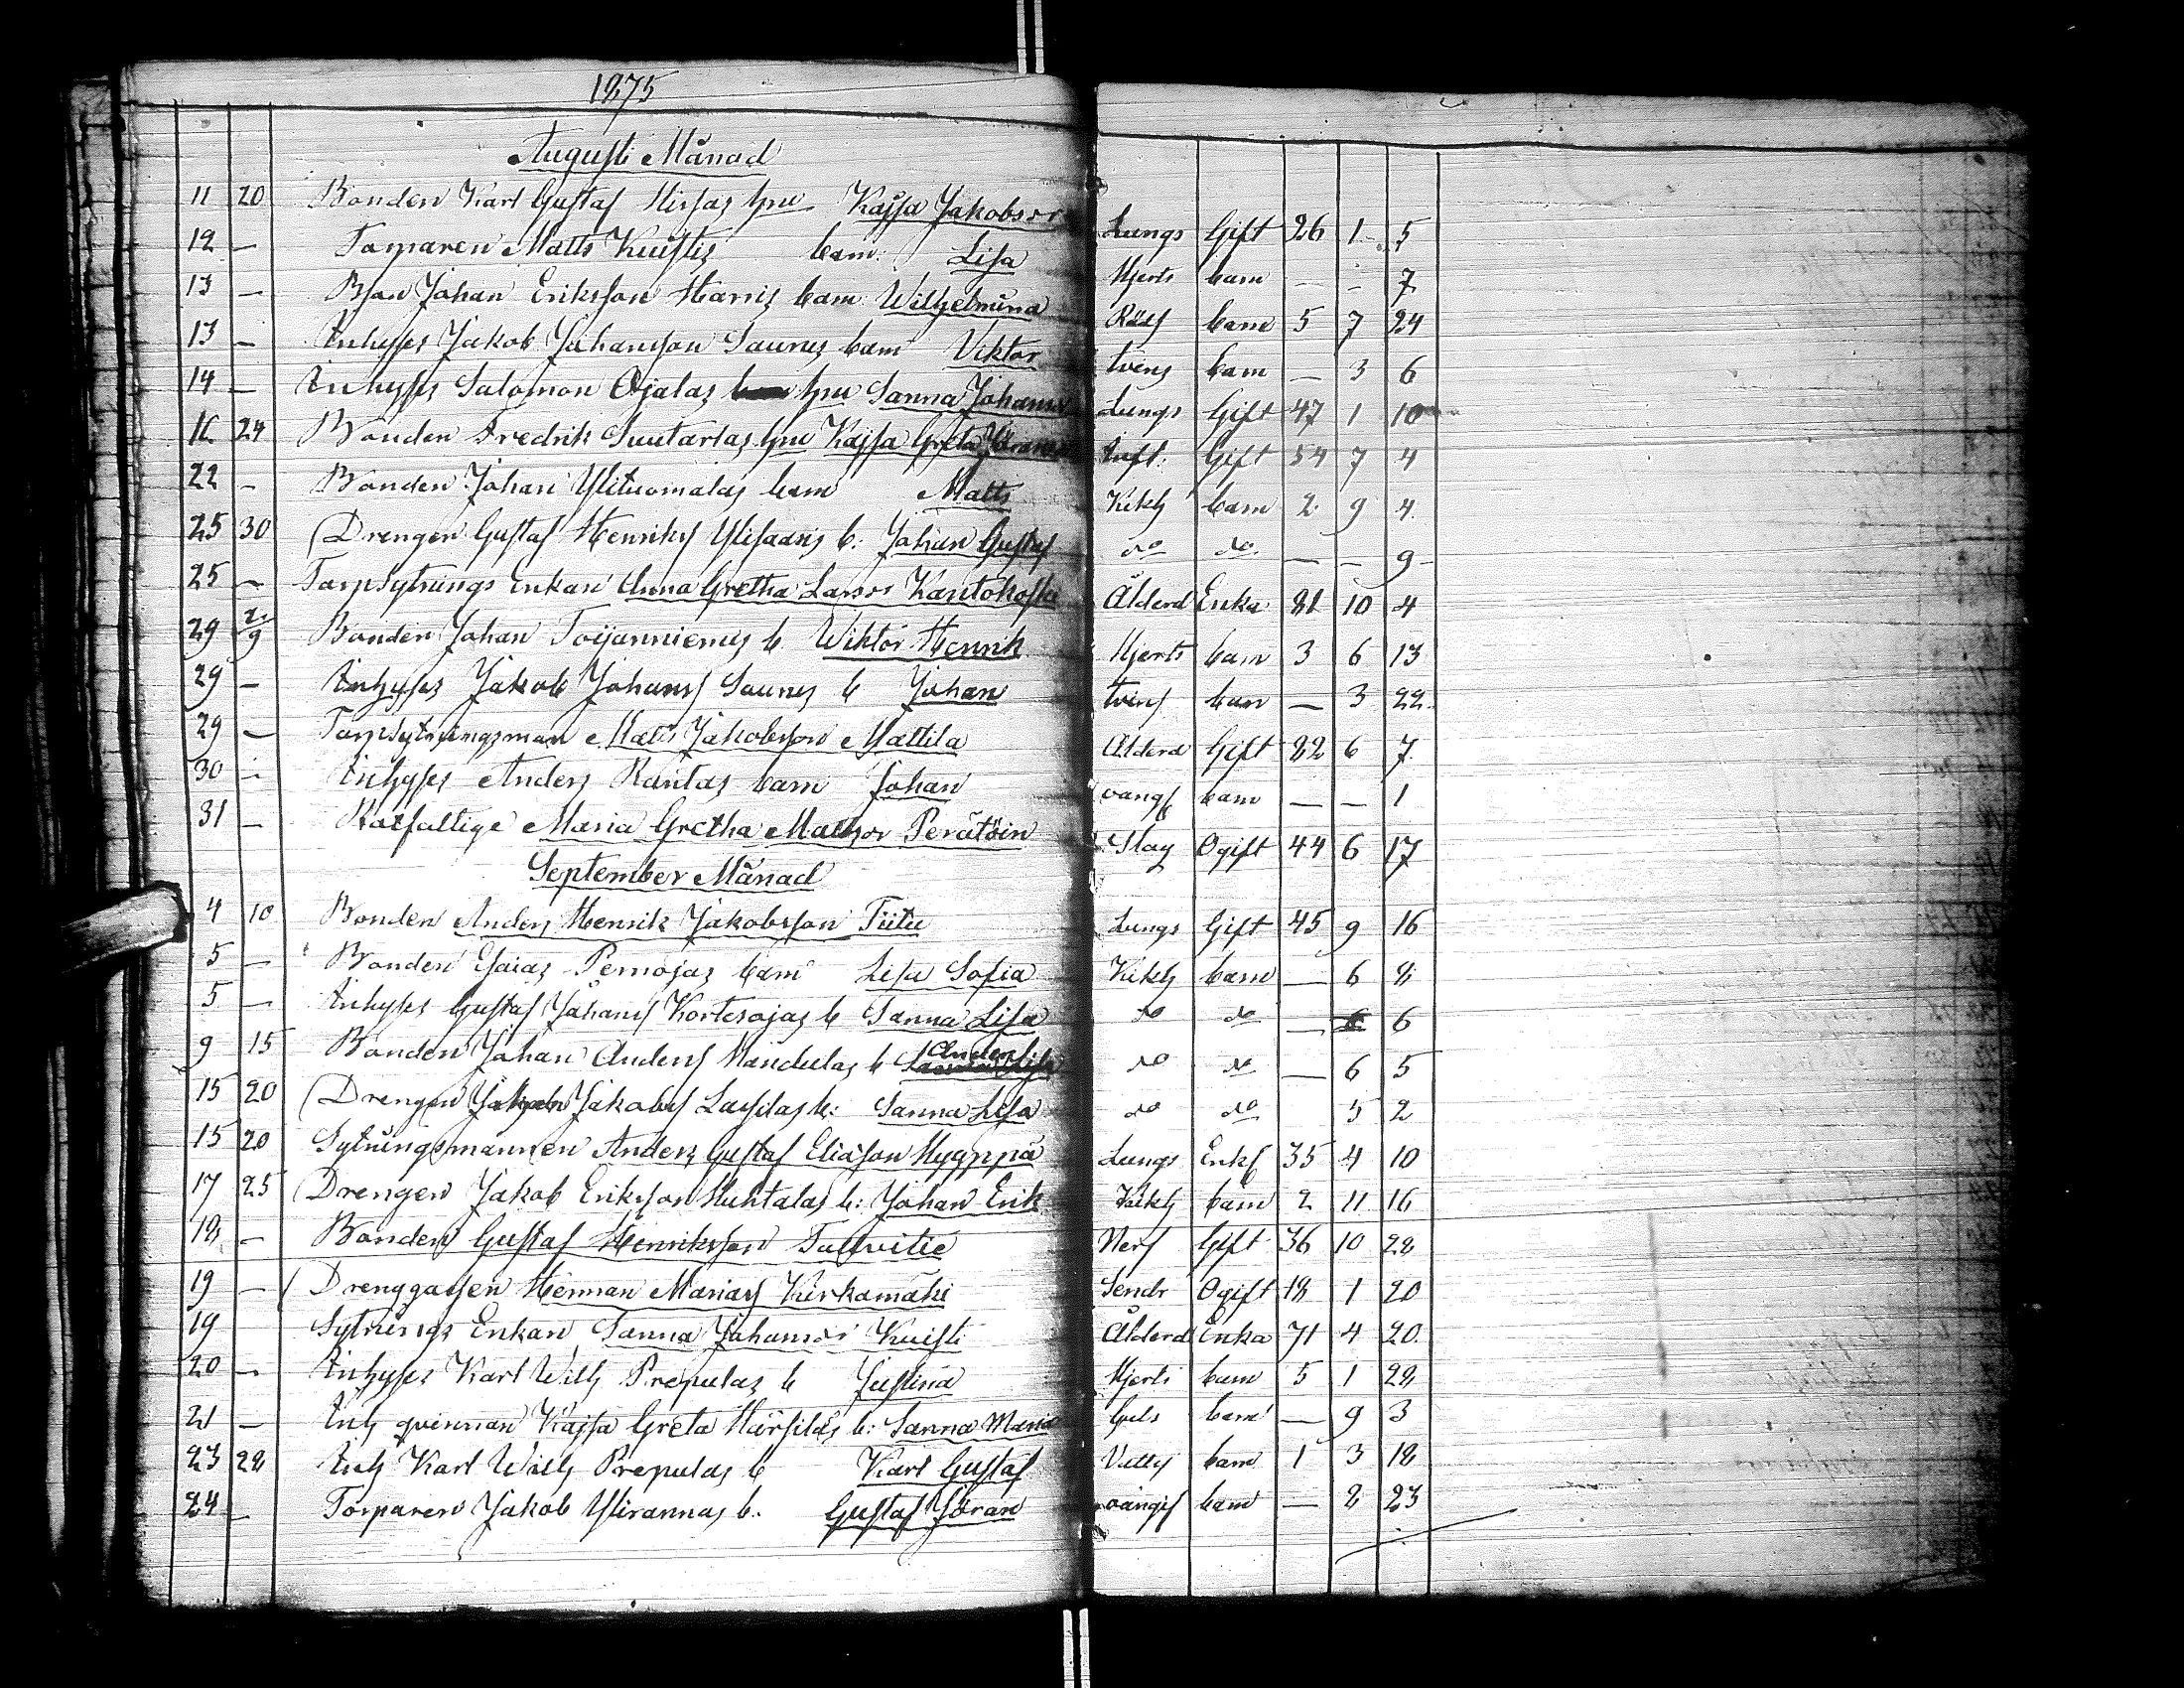 1875
Augusti Månad
11 20 Bonden Karl Gustaf Hissas hru Kajsa Jakobsdr Lungs Gift 26 1 5
12 — Torparen Matts Kuistis barn: Lisa Hjerts barn — — 7
13 — Bson Johan Eriksson Harris barn Wilhelmina Röds barn 5 7 24
13 — Inhyses Jakob Johansson Saunus barn Viktor tvins barn — 3 6
14 — Inhyses Salomon Ojalas hru Sanna Johansdr Lungs Gift 47 1 10
16 24 Bonden Fredrik Suutarlas hru Kajsa Greta Jöransdr Gift 54 7 4
22 — Bonden Johan Ylituomalas barn Matts Kikh barn 2 9 4
25 30 Drengen Gustaf Henriks Ylisaaris b: Johan Gustaf do do — — 9
25 — Torpsytnings Enkan Anna Gretha Larsdr Kantokoski Ålderd Enka 81 10 4
29 2/9 Bonden Johan Toijanniemis b Wiktor Henrik Hjerts barn 3 6 13
29 — Inhyses Jakob Johans Saunus b Johan tvins barn — 3 22
29 — Torpsytningsman Matts Jakobsson Mattila Ålderd Gift 82 6 7
30 — Inhyses Anders Rantas barn Johan barn — — 1
31 — Rotfattige Maria Gretha Matsdr Perätöin Slag Ogift 44 6 17
September Månad
4 10 Bonden Anders Henrik Jakobsson Tiitu Lungs Gift 45 9 16
5 — Bonden Esaias Pernojas barn Lisa Sofia Kikh barn — 6 8
5 — Inhyses Gustaf Johans Kortesojas b Sanna Lisa do do — 6
9 15 Bonden Johan Anders Mandulas b Anders do do — 6 5
15 20 Drengen Jakobs Lassilas b: Sanna Lisa do do 5 2
15 20 Sytningsmannen Anders Gustaf Eliasson Hyyppä Lungs Enkl 35 4 10
17 25 Drengen Jakob Eriksson Huhtalas b: Johan Erik Kikh barn 2 11 16
18 — Bonden Gustaf Henriksson Tallvitie Nerf Gift 36 10 28
19 — Drenggassen Herman Marias Kirkamäki Ogift 18 1 20
19 Sytnings Enkan Sanna Johansdr Kuisti Ålderd Enka 71 4 20
20 — Inhyses Karl Wilh Prepulas b Justina Hjerts barn 5 1 28
21 — Inh qvinnan Kajsa Greta Härsilas b: Sanna Maria Guls barn — 9 3
23 28 Inh Karl Wilh Prepulas b Karl Gustaf barn 1 3 18
24 — Torparen Jakob Ylirannas b. Gustaf Jöran barn — 2 23